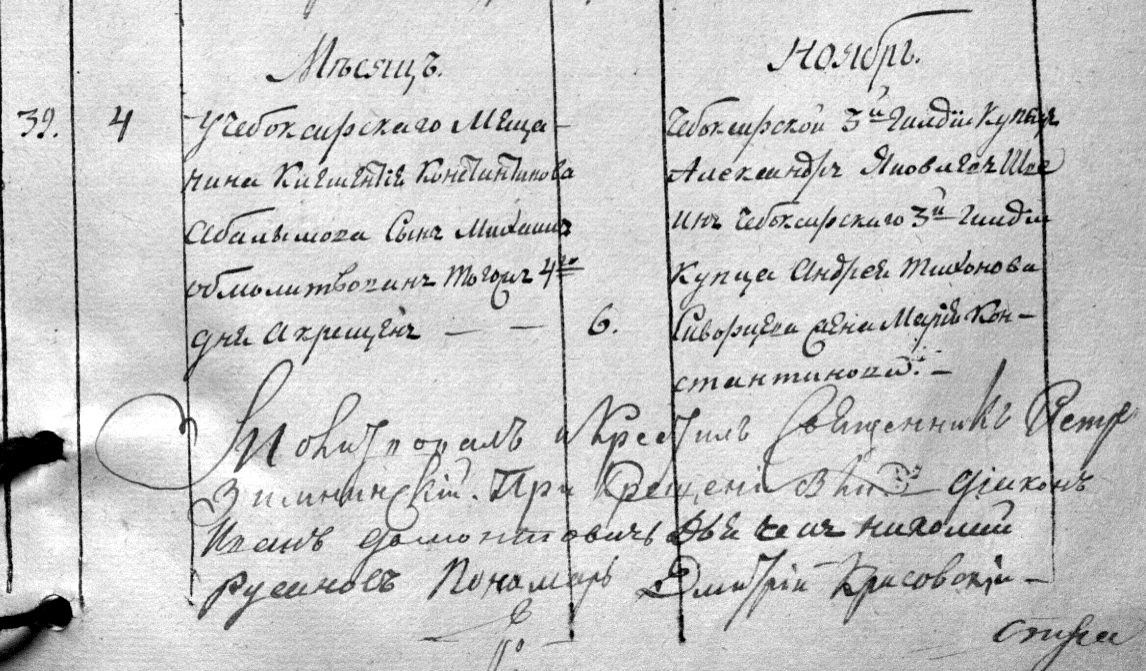 Мѣсяцъ. Ноябрь.
39. 4 У Чебоксарскаго Меща-
нина Климентiя Константинова
Абалымова Сынъ Михаилъ
обмолитвованъ тогожъ 4го
дня а крещенъ — — 6.
Чебоксарской 3й Гилдiи Купецъ
Александръ Яковлевъ Шле
инъ Чебоксарскаго 3й Гилдiи
Купца Андрея Тихонова
жена Марiя Кон-
стантинова. —
Молитвовалъ и Крестилъ Священникъ Петръ
При Крещенiи дiаконъ
Иванъ Дьячекъ Николай
Русановъ Пономарь Дмитрiй Красовскiй —